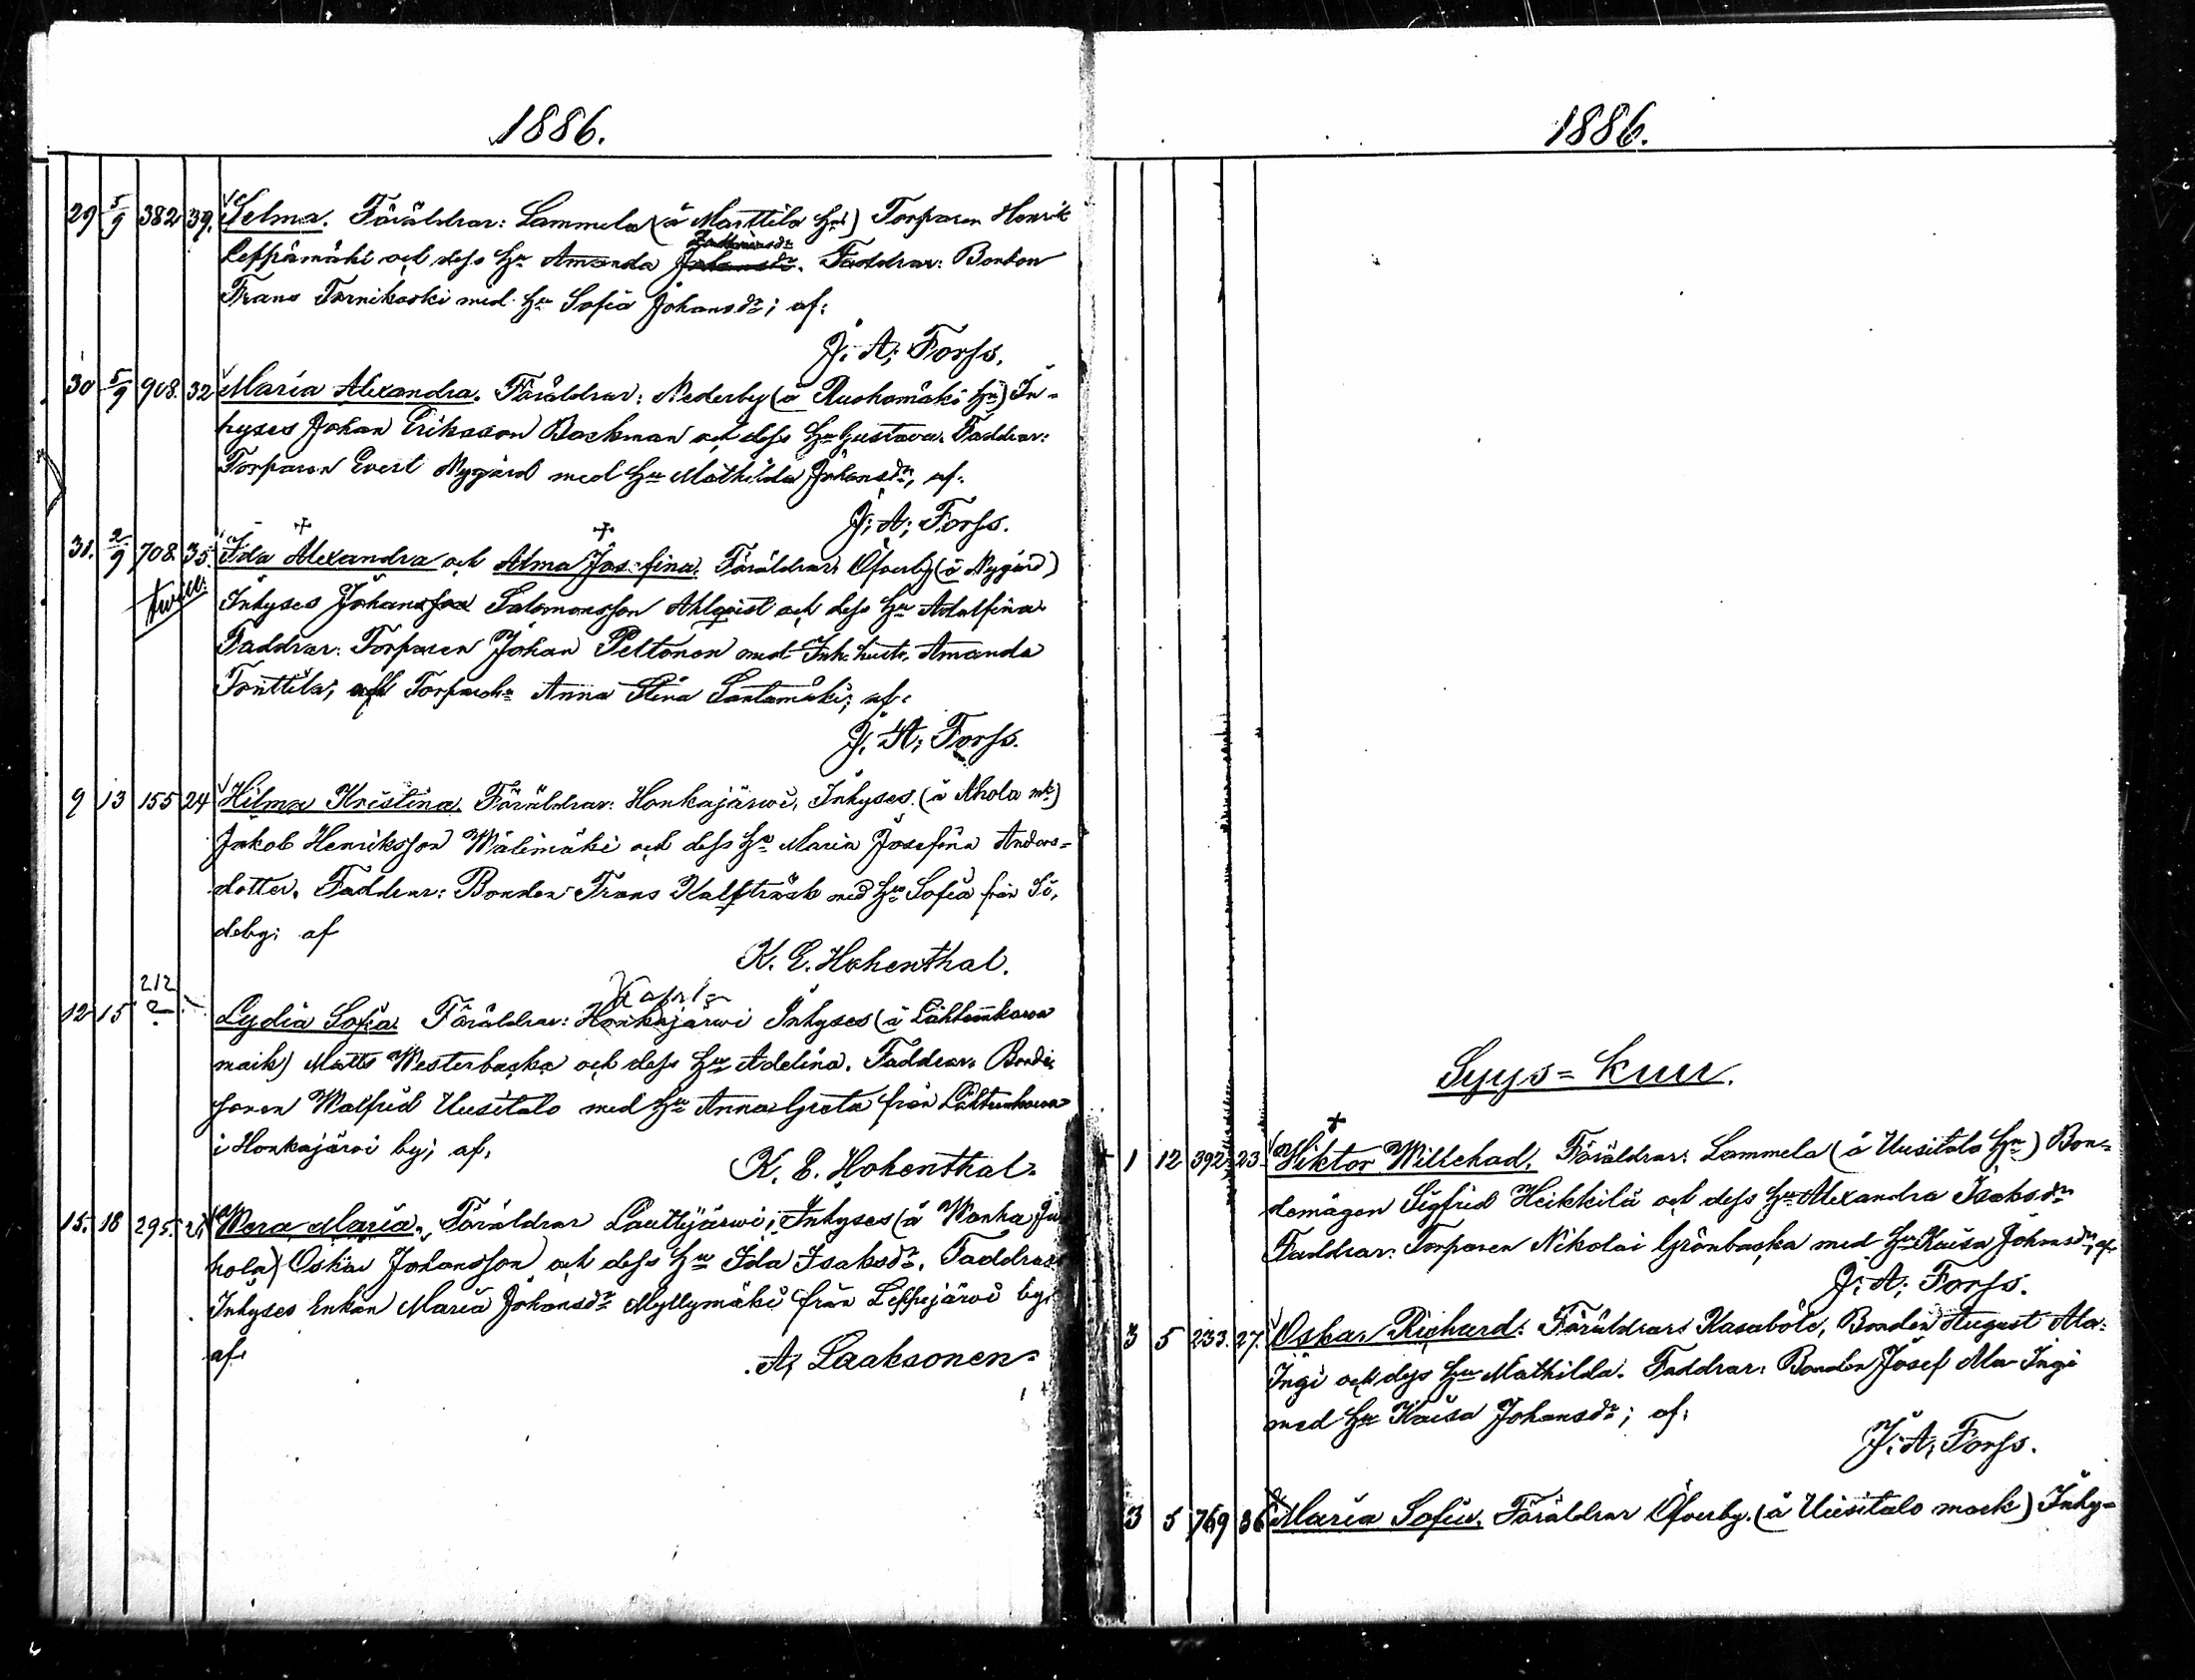 1886.
29 5/9 382 39. Selma. Föräldrar: Lammela (å Marttila hn) Torparen Henrik
Leppämäki och dess Hu Amanda Johansdr. Faddrar: Bonden
Frans Tornikoski med Hu Sofia Johansdr; af:
J. A. Forss.
30 5/9 908. 32 Maria Alexandra. Föräldrar: Nederby (å Ruohomäki hn) In-
hyses Johan Eriksson Backman och dess Hu Gustava. Faddrar:
Torparen Evert Nygård med Hu Mathilda Johansdr, af.
J. A. Forss.
31. 2/9 708. 35. Ida Alexandra och Alma Josefina. Föräldrar: Öfverby (å Nygård)
Inhyses Johan Salomonsson Ahlqvist och dess Hu Adolfina
Faddrar: Torparen Johan Peltonen med Inh. hustr. Amanda
Tonttila; Anna Stina Santamäki; af:
J. A. Forss.
9 13 155 24 Hilma Kristina. Föräldrar: Honkajärwi, Inhyses (å Ahola mk)
Jakob Henriksson Wälimäki och dess Hu Maria Josefina Anders-
dotter. Faddrar: Bonden Frans Kalfträsk med Hu Sofia från Sö,
deby; af
K. E. Hohenthal.
212
12 15 ? Lydia Sofia. Föräldrar: Honkajärwi Inhyses (å
mark) Matts Westerbacka och dess Hu Adelina. Faddrar: Bonde-
sonen Walfrid Uusitalo med Hu Anna Greta från
i Honkajärwi by; af.
K. E. Hohenthal.
15. 18 295. Wera Maria. Föräldrar Lauttijärwi, Inhyses (å Wanha Ju
hola) Oskar Johansson och dess Hu Ida Isaksdr. Faddrar
Inhyses Enkan Maria Johansdr Myllymäki från Leppijärwi by;
af.
A. Laaksonen.
1886.
Syys-kuu.
1 12 392 23. Wiktor Willehad. Föräldrar: Lammela (å Uusitalo hn) Bon-
demågen Sigfrid Heikkilä och dess Hu Alexandra Isaksdr
Faddrar: Torparen Nikolai Grönbacka med Hu Kaisa Johansdr, af.
J. A. Forss.
3 5 233. 27. Oskar Richard. Föräldrar: Kasaböle, Bonden August Ala-
Ingi och dess Hu Mathilda. Faddrar: Bonden Josef Ala-Ingi
med Hu Kaisa Johansdr; af:
J. A. Forss.
3 5 769 36 Maria Sofia. Föräldrar Öfverby. (å Uusitalo mark) Inhy-